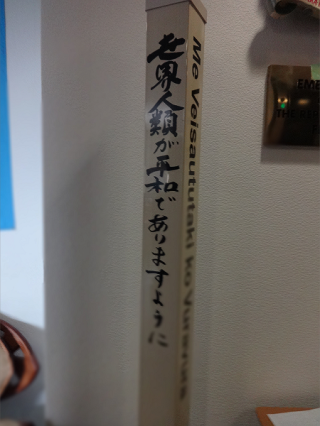 世界人類が平和でありますように
Me Veisaututaki ko Vuravura
EME